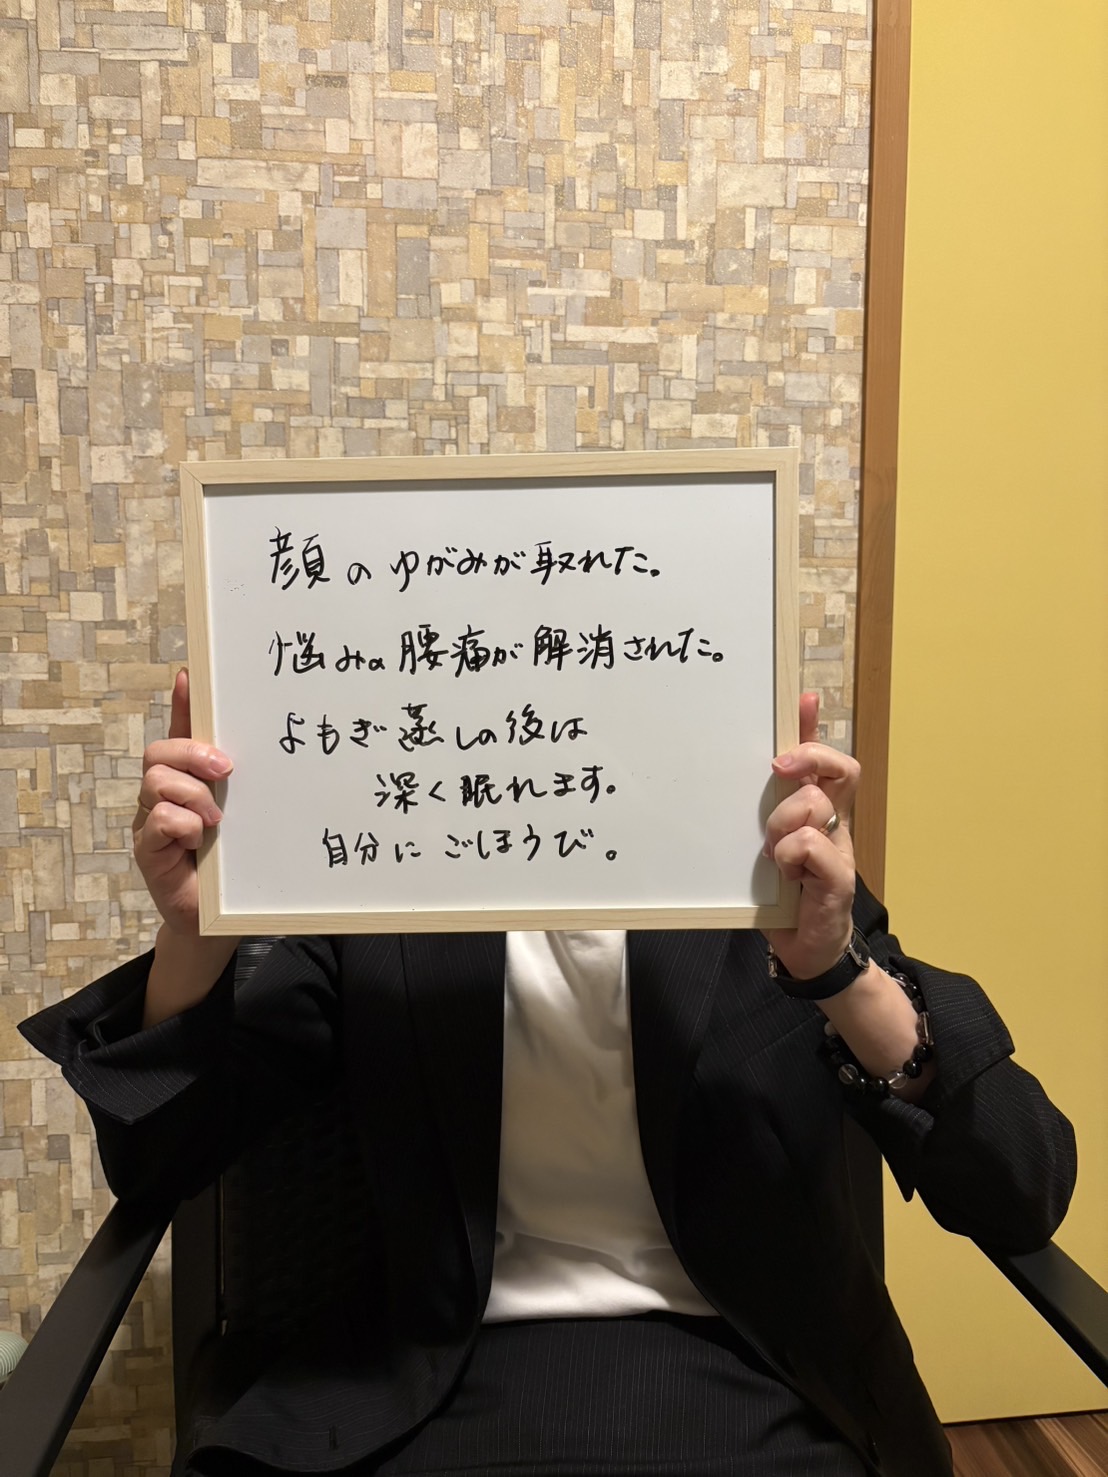 顔のゆがみが取れた。
悩みの腰痛が解消された。
よもぎ蒸しの後は
深く眠れます。
自分にごほうび。